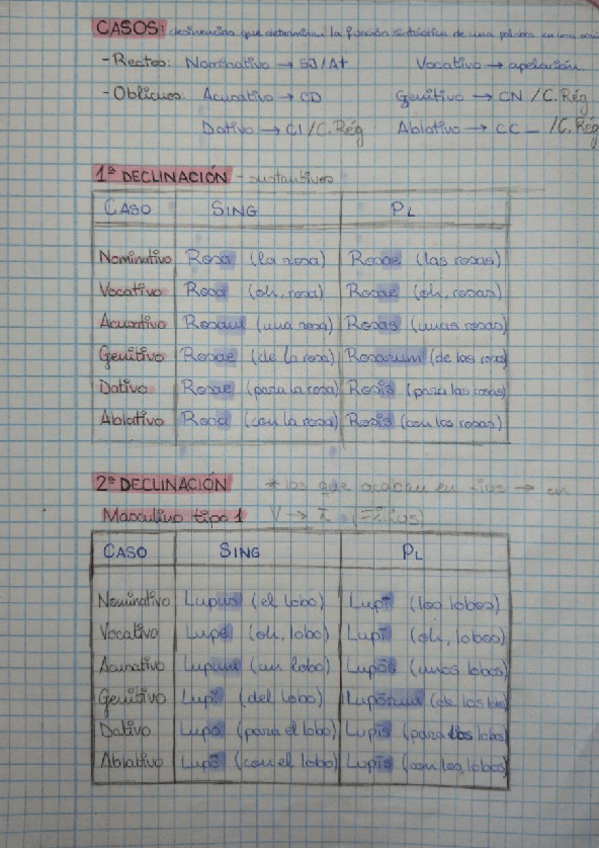 CASOS: desinencias que determinan la función sintáctica de una palabra en una
- Rectos: Nominativo → SJ/At Vocativo → apelación
- Oblicuos: Acusativo → CD Genitivo → CN / C. Rég
Dativo → CI / C. Rég Ablativo → CC _ / C. Rég
1ª DECLINACIÓN - sustantivos
CASO SING PL
Nominativo Rosa (la rosa) Rosae (las rosas)
Vocativo Rosa (oh, rosa) Rosae (oh, rosas)
Acusativo Rosam (una rosa) Rosas (unas rosas)
Genitivo Rosae (de la rosa) Rosarum (de las rosas)
Dativo Rosae (para la rosa) Rosis (para las rosas)
Ablativo Rosa (con la rosa) Rosis (con las rosas)
2ª DECLINACIÓN * los que acaban en -ius → en
Masculino tipo 1 V → ī (Fīlius)
CASO SING PL
Nominativo Lupus (el lobo) Lupī (los lobos)
Vocativo Lupe (oh, lobo) Lupī (oh, lobos)
Acusativo Lupum (un lobo) Lupōs (unos lobos)
Genitivo Lupī (del lobo) Lupōrum (de los
Dativo Lupō (para el lobo) Lupīs (para los lobos)
Ablativo Lupō (con el lobo) Lupīs (con los lobos)